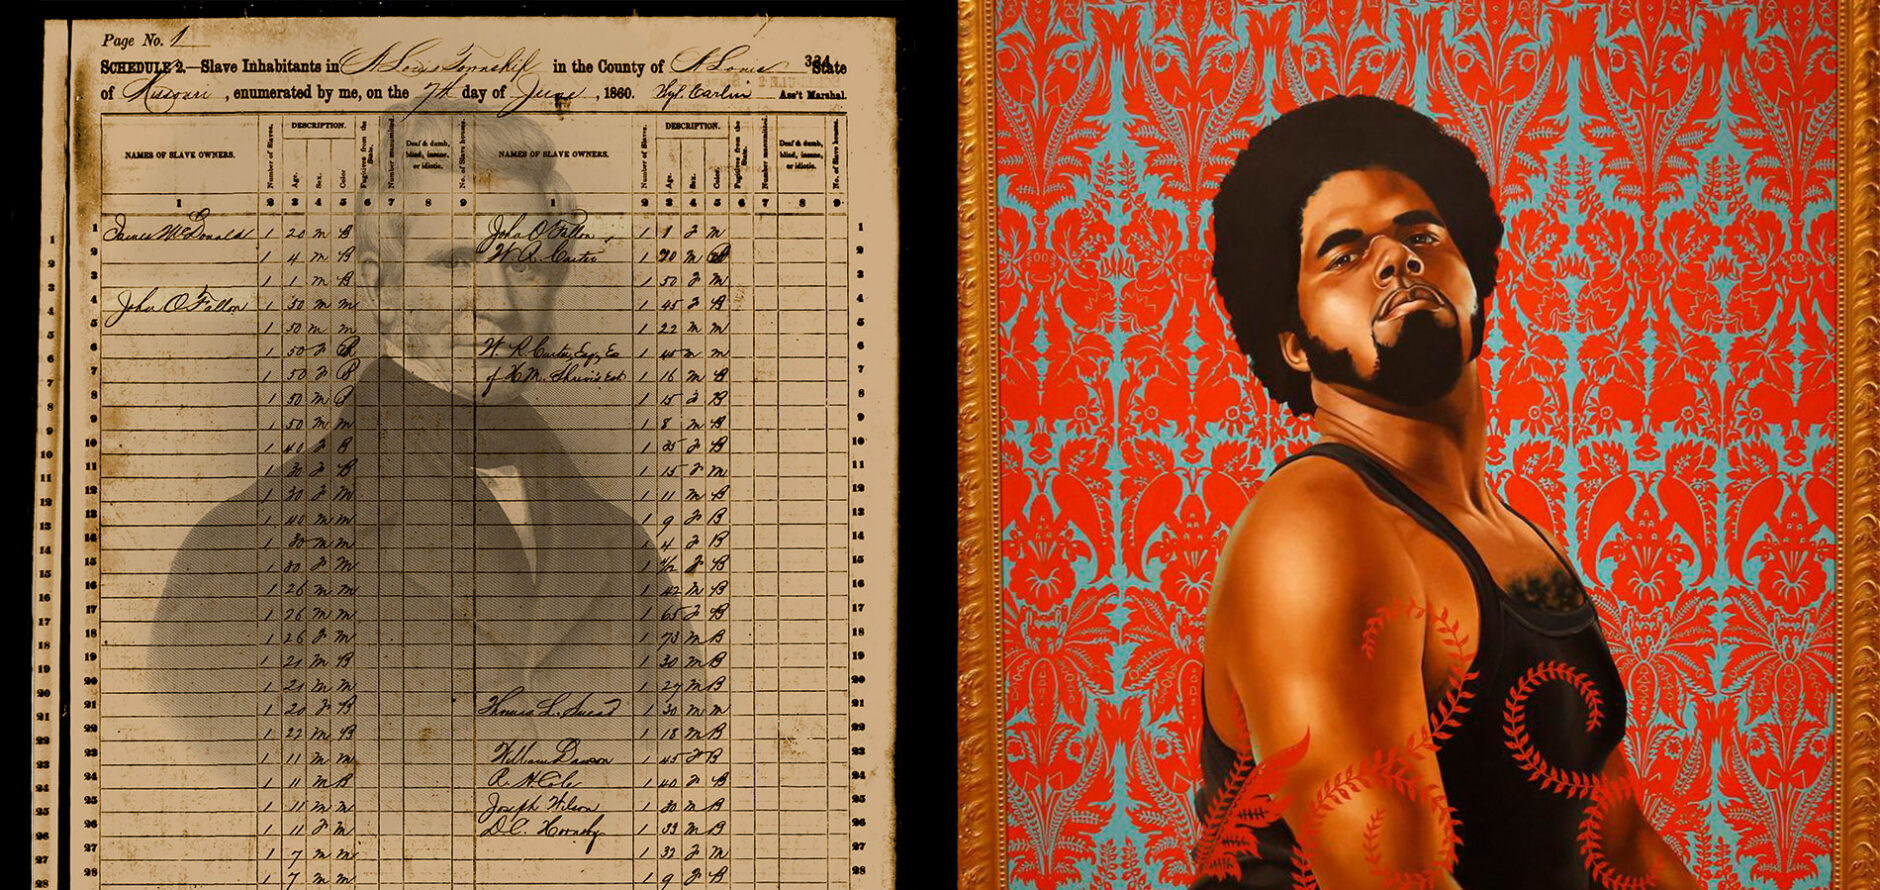 Page No. 1
SCHEDULE 2.—Slave Inhabitants in St Louis Township in the County of St Louis State 334
of Missouri, enumerated by me, on the 7th day of June, 1860. Ass't Marshal.
DESCRIPTION. DESCRIPTION.
NAMES OF SLAVE OWNERS. Number of Slaves. Age. Sex. Color. Fugitives from the State. Number manumitted. Deaf & dumb, blind, insane, or idiotic. No. of Slave houses. NAMES OF SLAVE OWNERS. Number of Slaves. Age. Sex. Color. Fugitives from the State. Number manumitted. Deaf & dumb, blind, insane, or idiotic. No. of Slave houses.
1 2 3 4 5 6 7 8 9 1 2 3 4 5 6 7 8 9
1 James McDonald 1 20 m B John O'Fallon 1 1 f m 1
2 1 4 m B W. R. Carter 1 m 2
3 1 1 m B 1 50 f m 3
4 John O'Fallon 1 50 m m 1 45 f B 4
5 1 50 m m 1 22 m m 5
6 1 50 f B 1 45 m m 6
7 1 50 f B 1 16 m B 7
8 1 50 m 1 15 f B 8
9 1 50 m m 1 8 m B 9
10 1 40 f B 1 f B 10
11 1 f B 1 15 f m 11
12 1 30 f m 1 11 m B 12
13 1 40 m m 1 9 f B 13
14 1 30 m m 1 4 f B 14
15 1 30 f m 1 f B 15
16 1 26 m m 1 42 m B 16
17 1 26 m m 1 65 f B 17
18 1 26 f m 1 73 m B 18
19 1 21 m B 1 30 m B 19
20 1 21 m m 1 27 m B 20
21 1 20 f B Thomas L. Snead 1 30 m m 21
22 1 22 m B 1 18 m B 22
23 1 11 m m William Dawson 1 45 f B 23
24 1 11 m B R. H. Cole 1 40 f B 24
25 1 11 m m Joseph Wilson 1 30 m B 25
26 1 11 f m D.C. Hornsby 1 33 m B 26
27 1 7 m m 1 32 f m 27
28 1 7 m m 1 9 f B 28